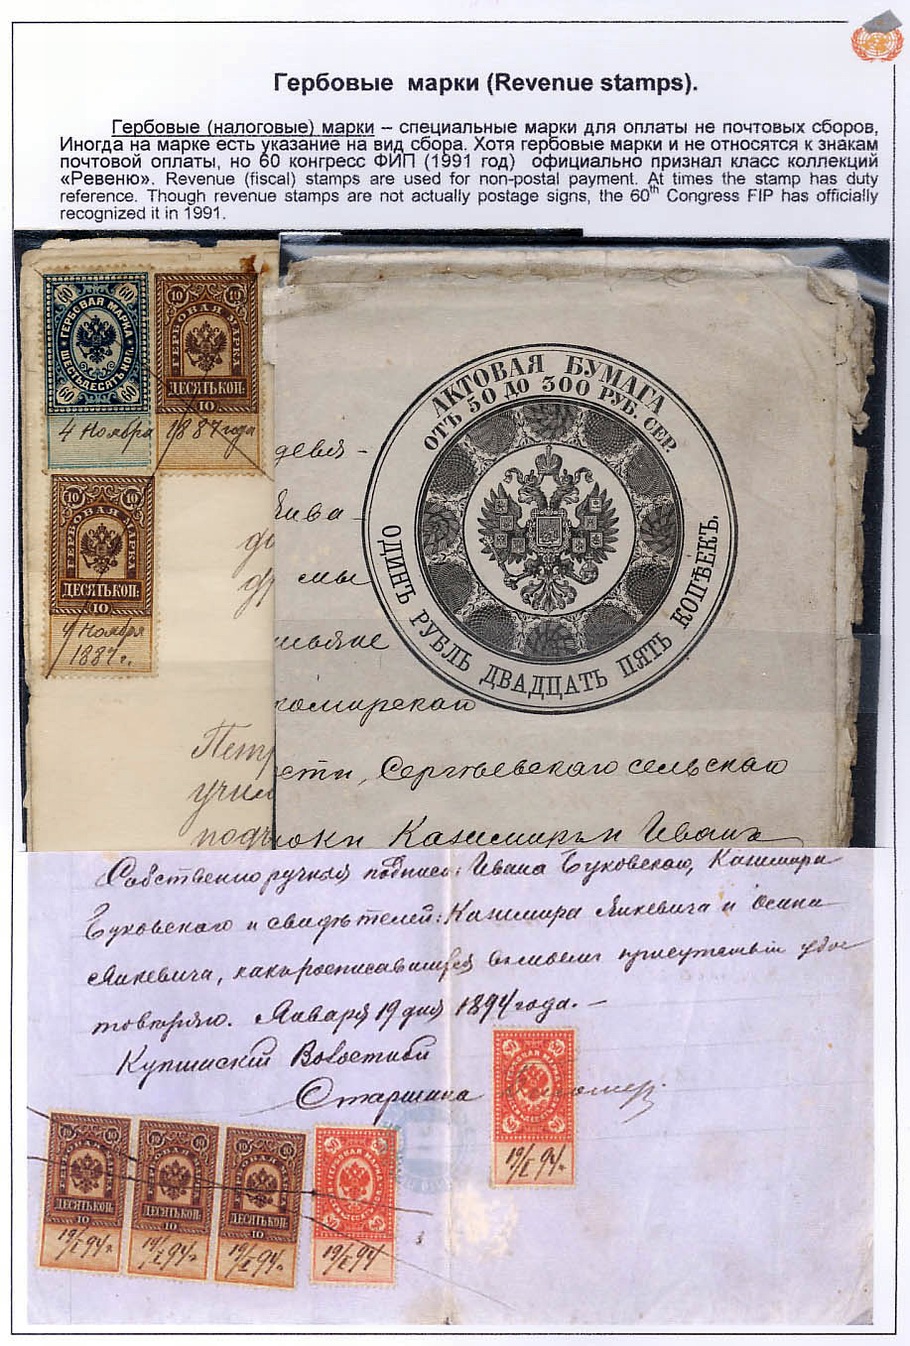 Гербовые марки (Revenue stamps).
Гербовые (налоговые) марки – специальные марки для оплаты не почтовых сборов,
Иногда на марке есть указание на вид сбора. Хотя гербовые марки и не относятся к знакам
почтовой оплаты, но 60 конгресс ФИП (1991 год) официально признал класс коллекций
«Ревеню». Revenue (fiscal) stamps are used for non-postal payment. At times the stamp has duty
reference. Though revenue stamps are not actually postage signs, the 60th Congress FIP has officially
recognized it in 1991.
60 60
ГЕРБОВАЯ МАРКА
ШЕСТЬДЕСЯТЪ КОП.
60 60
4 Ноября
10 10
ГЕРБОВАЯ МАРКА
ДЕСЯТЬ КОП.
10
1887 года
10 10
ГЕРБОВАЯ МАРКА
ДЕСЯТЬ КОП.
10
4 Ноября
1887 г.
АКТОВАЯ БУМАГА
ОТЪ 50 ДО 300 РУБ. СЕР.
ОДИНЪ РУБЛЬ ДВАДЦАТЬ ПЯТЬ КОПѢЕКЪ.
девя-
мы
Сергѣевскаго сельскаго
Казимиръ Иванъ
Собственноручныя подписи: Ивана Буковскаго, Казимира
Буковскаго и свидѣтелей: Казимира Янкевича и Осипа
Янкевича, присутствіи
Января 19 дня 1894 года. –
Старшина
10 10
ГЕРБОВАЯ МАРКА
ДЕСЯТЬ КОП.
10
19/I 94 г.
10 10
ГЕРБОВАЯ МАРКА
ДЕСЯТЬ КОП.
10
19/I 94 г.
10 10
ГЕРБОВАЯ МАРКА
ДЕСЯТЬ КОП.
10
19/I 94 г.
ГЕРБОВАЯ МАРКА
19/I 94
ГЕРБОВАЯ МАРКА
19/I 94 г.